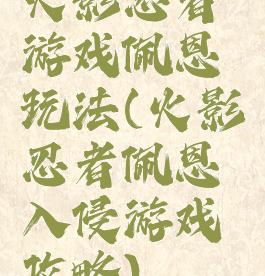 火影忍者
游戏佩恩
玩法(火影
忍者佩恩
入侵游戏
攻略)